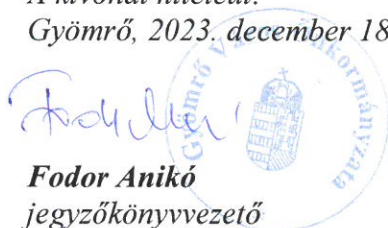 A kivonat hiteléül:
Gyömrő, 2023. december 18
Gyömrő Város Önkormányzata
Fodor Anikó
jegyzőkönyvvezető